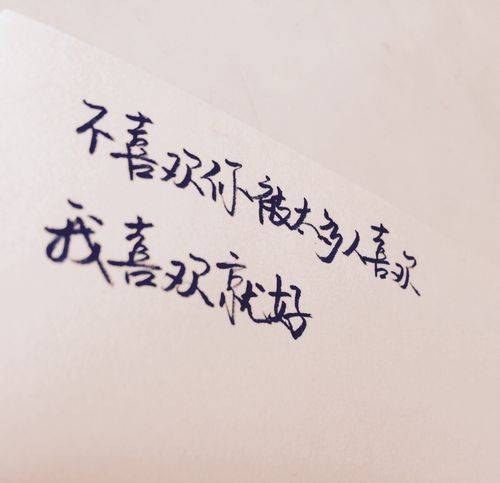 不喜欢你被太多人喜欢
我喜欢就好